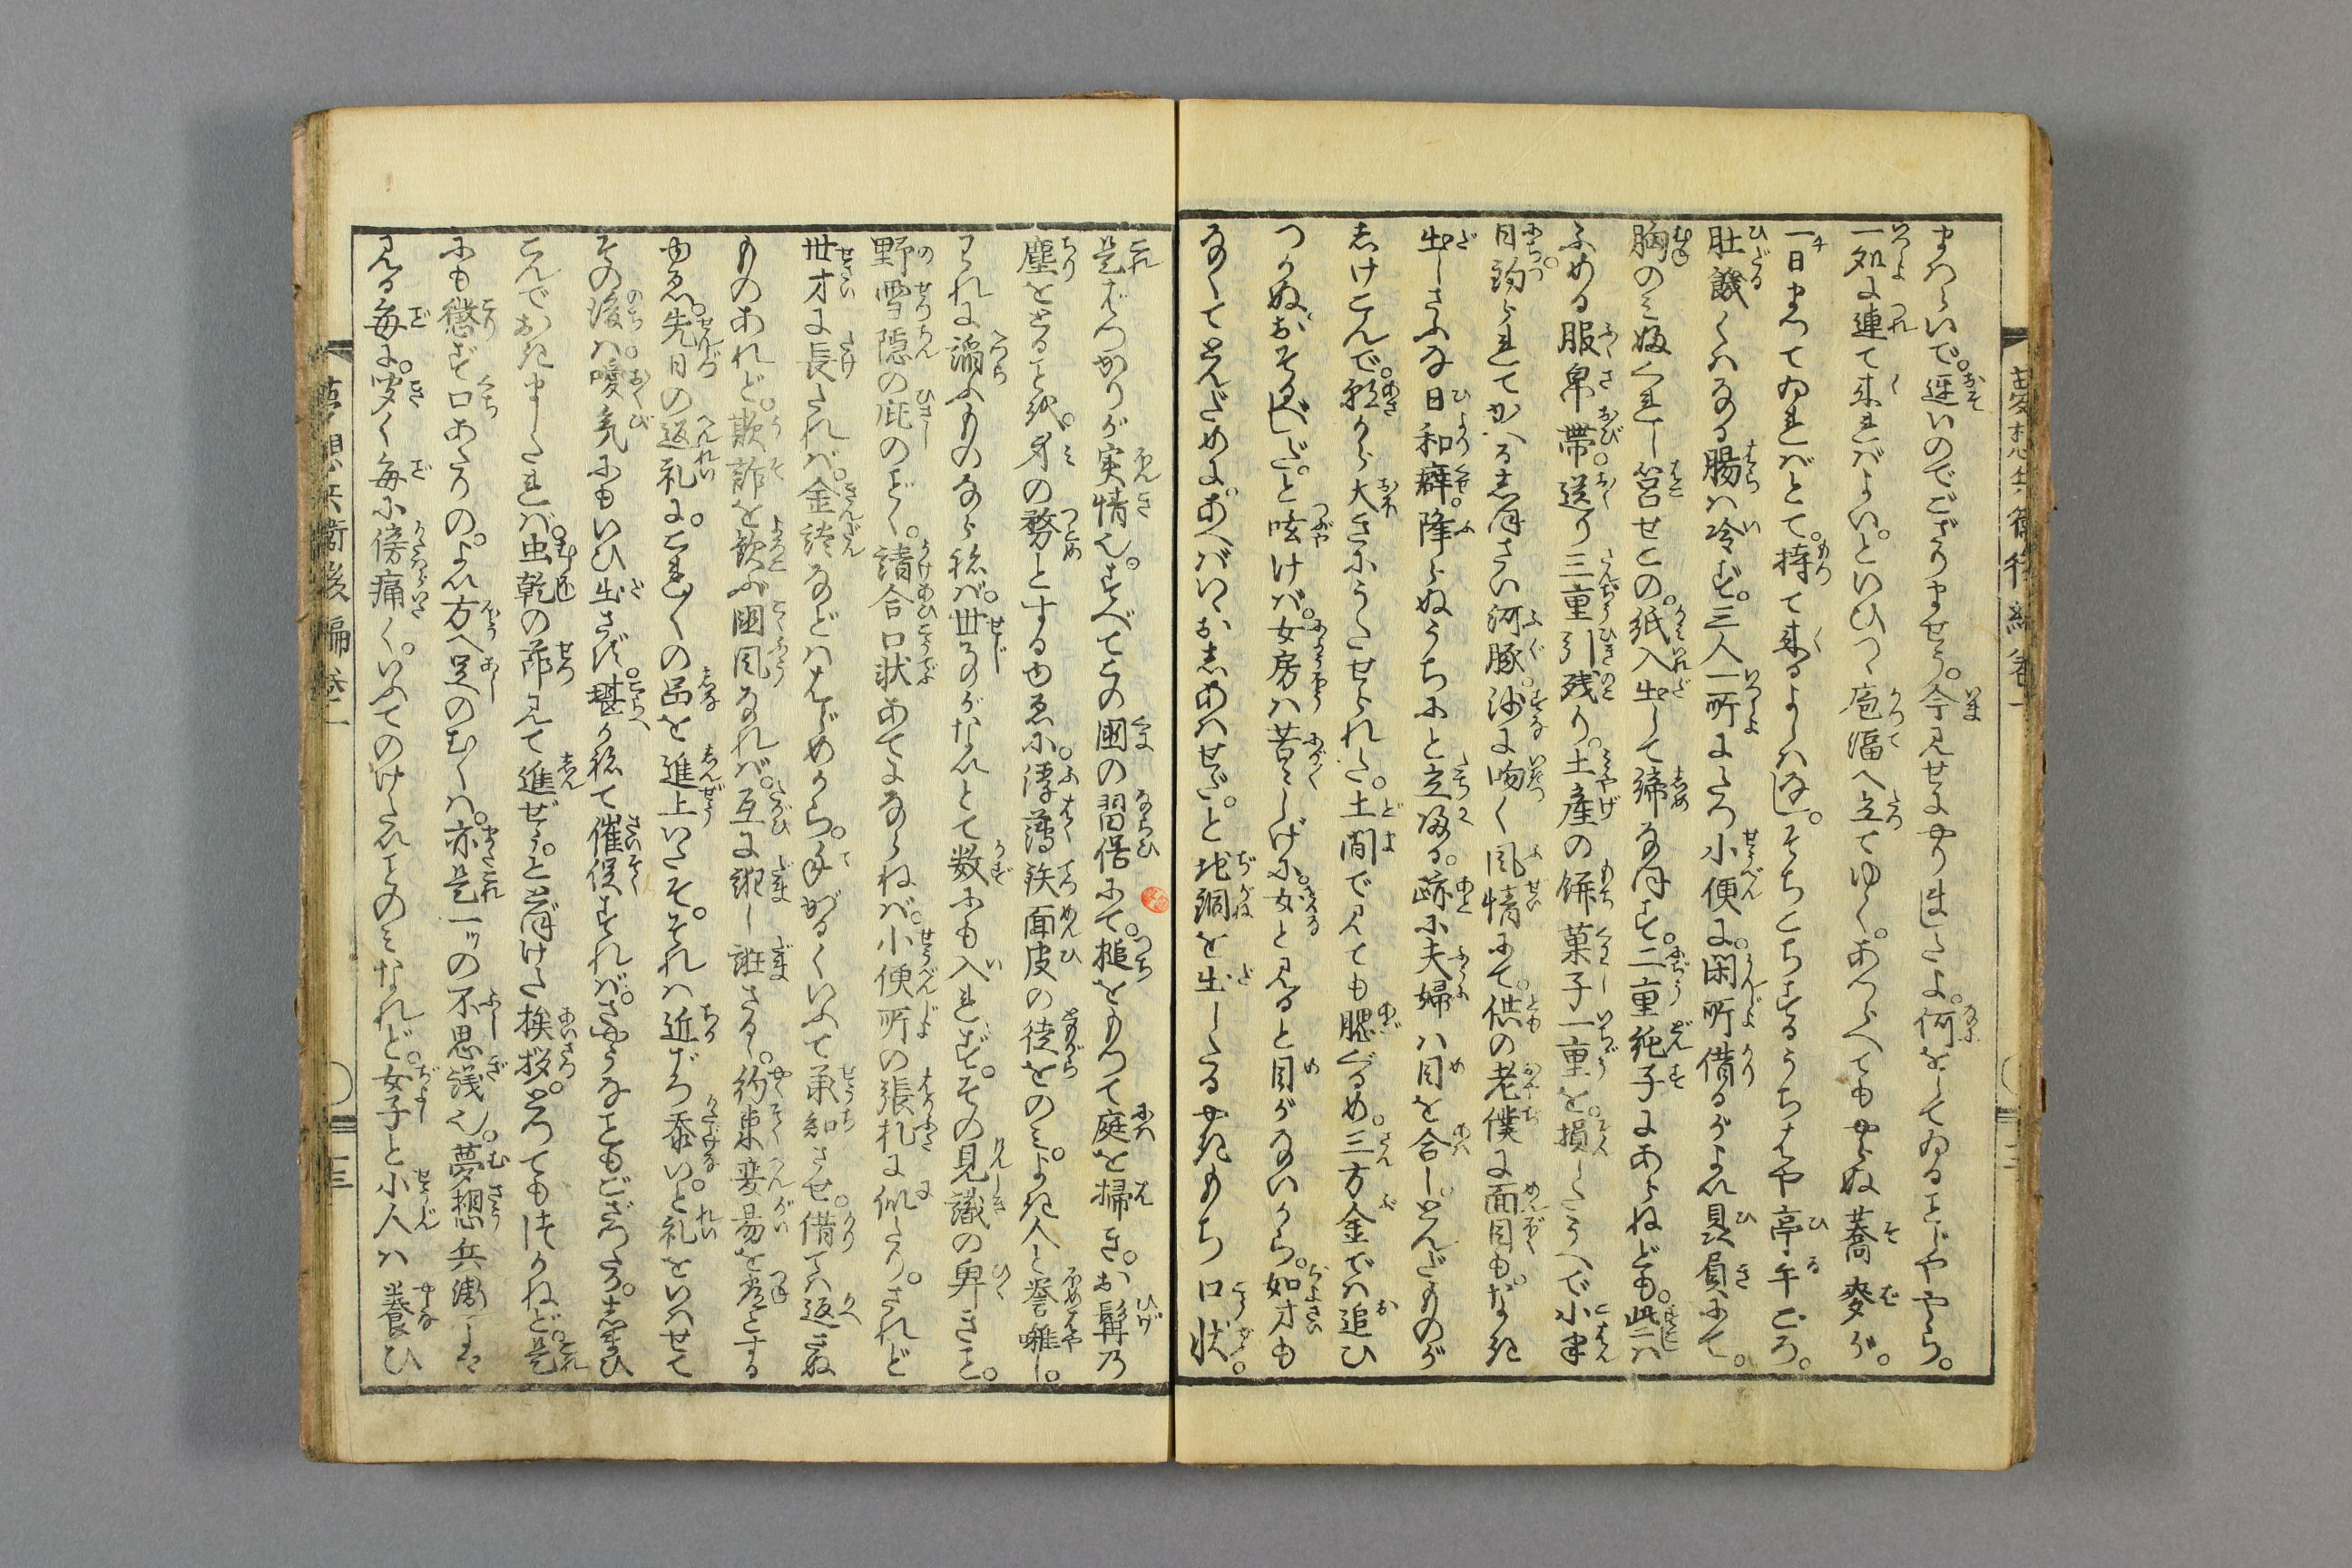 まはらいで。遅いのでござりませう。今見せにやりましたよ。何をしてゐることじややら。
一処に連て来ればよい。といひつゝ庖湢へ立てゆく。あつらへてもやらぬ蕎麦が。
一日まつてゐればとて。持て来るよしはなし。そちこちするうちはや亭午ごろ。
肚饑くはなる腸は冷ず。三人一所にたつ小便に。閑所借るがよい貝負にて。
胸のみ
せとの。紙入出して締なほす。二重純子にあらねども。此二ハ
ふめる服帛帯。送り三重引残り。土産の餅菓子一重を。損したうへで小半
日
かへるしほさい河豚。沙に吻く風情にて。供の老僕に面目も。なき
出しさふな日和癖。降らぬうちにと立帰る。跡に夫婦ハ目を合し。とんだものが
しけこんで。朝から大きにうたせられた。土間で見ても腮ぐるめ。三方金では追ひ
つかぬ。おそるべし。と呟けば。女房ハ苦々しげに。女と見ると目がないから。如才も
なくてとんだめに。あへばいゝおしあはせだ。と地銅を出したるやきもち口状。
是ばつかりが実情也。すべてこの国の習俗にて。槌をもつて庭を掃き。お髯乃
塵をとること
を。身の務とするゆゑに。浮薄鉄面皮の徒をのみ。よき人と誉囃し。
これに諂ふものならねば。世事のがなしとて数にも入れず。その見識の卑きこと。
野雪隠の庇のごとく。請合口状あてにならねば。小便所の張札に似たり。されど
世才に長たれば。金談などハはじめから。手がるくいふて承知させ。借てハ返さぬ
ものあれど。欺詐を歓ぶ国風なれば。互に誑し誑さるゝ。約束変易を常とする
ゆゑ。先日の返礼に。これ〳〵の品を進上いたそ。それハ近ごろ忝い。と礼をいはせて
その後ハ。噯気にもいひ出さず。堪かねて催促すれば。さやうなこともござつたら。しまひ
こんでおきましたれば。虫乾の節見て進ぜう。ととぼけた挨拶。とつてもつかねど。是
にも懲ず口あたりの。よい方へ足のむくハ。亦是一ッの不思議也。夢想兵衛ハ
見る毎に。聞く毎に傍痛く。いふてのけたいことのミなれど。女子と小人ハ養ひ
夢想兵衛後編巻二